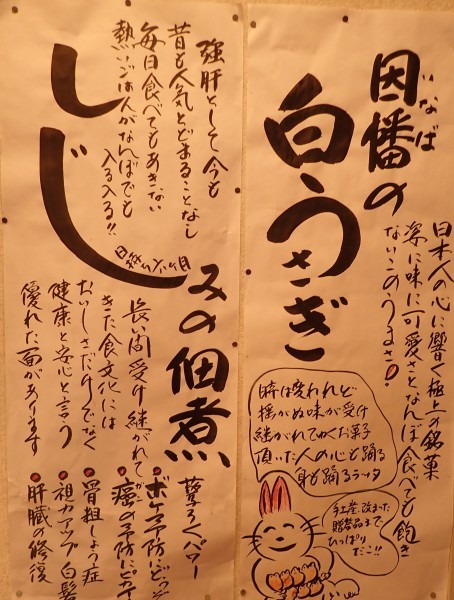 因幡の
いなば
白うさぎ
日本人の心に響く極上の銘菓
姿に味に可愛さとなんぼ食べても飽き
ないこのうるさ!
揺がぬ味が受け
継がれてゆくお菓子
頂いた人の心も踊る
身も踊るラッタ
手土産 改まった
贈答品まで
ひっぱり
だこ!!
強肝として今も
昔も人気とどまることなし
毎日食べてもあきない
熱いごはんがなんぼでも
入る入る!!
しじみの佃煮
日持ち六ヶ月
長い間受け継がれて
きた食文化には
おいしさだけでなく
健康と安心と言う
優れた面があります
驚ろくパワー
ボケ予防にどうぞ
癌の予防にピカイ
骨粗しょう症
視力アップ 白髪
肝臓の修復